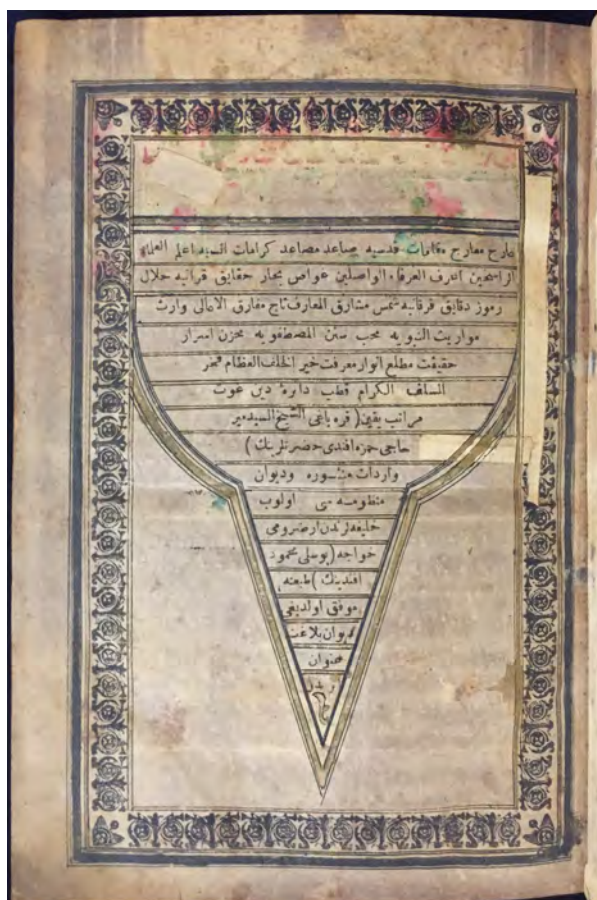 عارج معارج مقامات قدسيه صاعد مصاعد كرامات انسيه اعلم العلماء
الراسخين اعرف العرفاء الواصلين غواص بحار حقايق قرآنيه حلال
رموز دقايق فرقانيه شمس مشارق المعارف تاج مفارق الاعالى وارث
مواريث النبويه محب سنن المصطفويه مخزن اسرار
حقيقت مطلع انوار معرفت خير الخلف العظام فخر
السلف الكرام قطب دائرۀ دين غوث
مراتب يقين (قره باغى الشيخ السيد مير
حاجى حمزه افندى حضرتلرينك)
واردات منثوره وديوان
منظومه سى اولوب
خليفه لرندن ارضرومى
خواجه (يوسلى محمود
افندينك) طبعنه
موفق اولديغى
ديوان بلاغت
عنوان
در